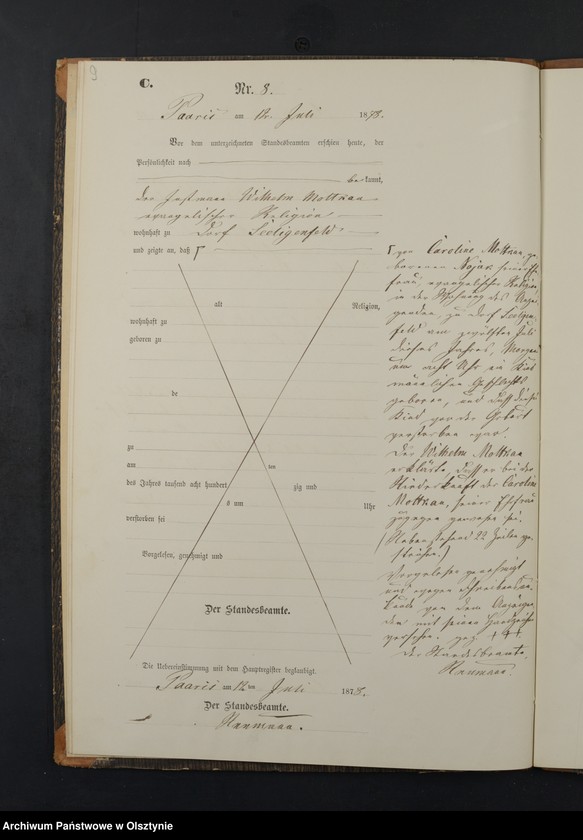 9
C.
Nr. 8.
Paaris am 12. Juli 1878.
Vor dem unterzeichneten Standesbeamten erschien heute, der
Persönlichkeit nach
bekannt,
der Instmann Wilhelm Mottkau
evangelischer Religion
wohnhaft zu Dorf Seeligenfeld
und zeigte an, daß
alt Religion,
wohnhaft zu
geboren zu
de
zu
am ten
des Jahres tausend acht hundert zig und
s um Uhr
verstorben sei
Vorgelesen, genehmigt und
Der Standesbeamte.
von Caroline Mottkau ge-
borenen seiner Ehe-
frau, evangelischer Religion
in der Wohnung des Anzei-
genden, zu Dorf Seeligen-
feld am zwölften Juli
dieses Jahres, Morgens
um acht Uhr ein Kind
männlichen Geschlechts
geboren, und daß dieses
Kind vor der Geburt
verstorben war.
Der Wilhelm Mottkau
erklärte, daß er bei der
Niederkunft der Caroline
Mottkau, seiner Ehefrau
zugegen gewesen sei.
Nebenstehend 22 Zeilen ge-
strichen.
Vorgelesen genehmigt
und wegen Schreibensun-
kunde von dem Anzeigen-
den mit seinem Handzeichen
versehen. gez. +++
Der Standesbeamte.
Naumann.
Die Uebereinstimmung mit dem Hauptregister beglaubigt.
Paaris am 12ten Juli 1878.
Der Standesbeamte.
Naumann.
Archiwum Państwowe w Olsztynie